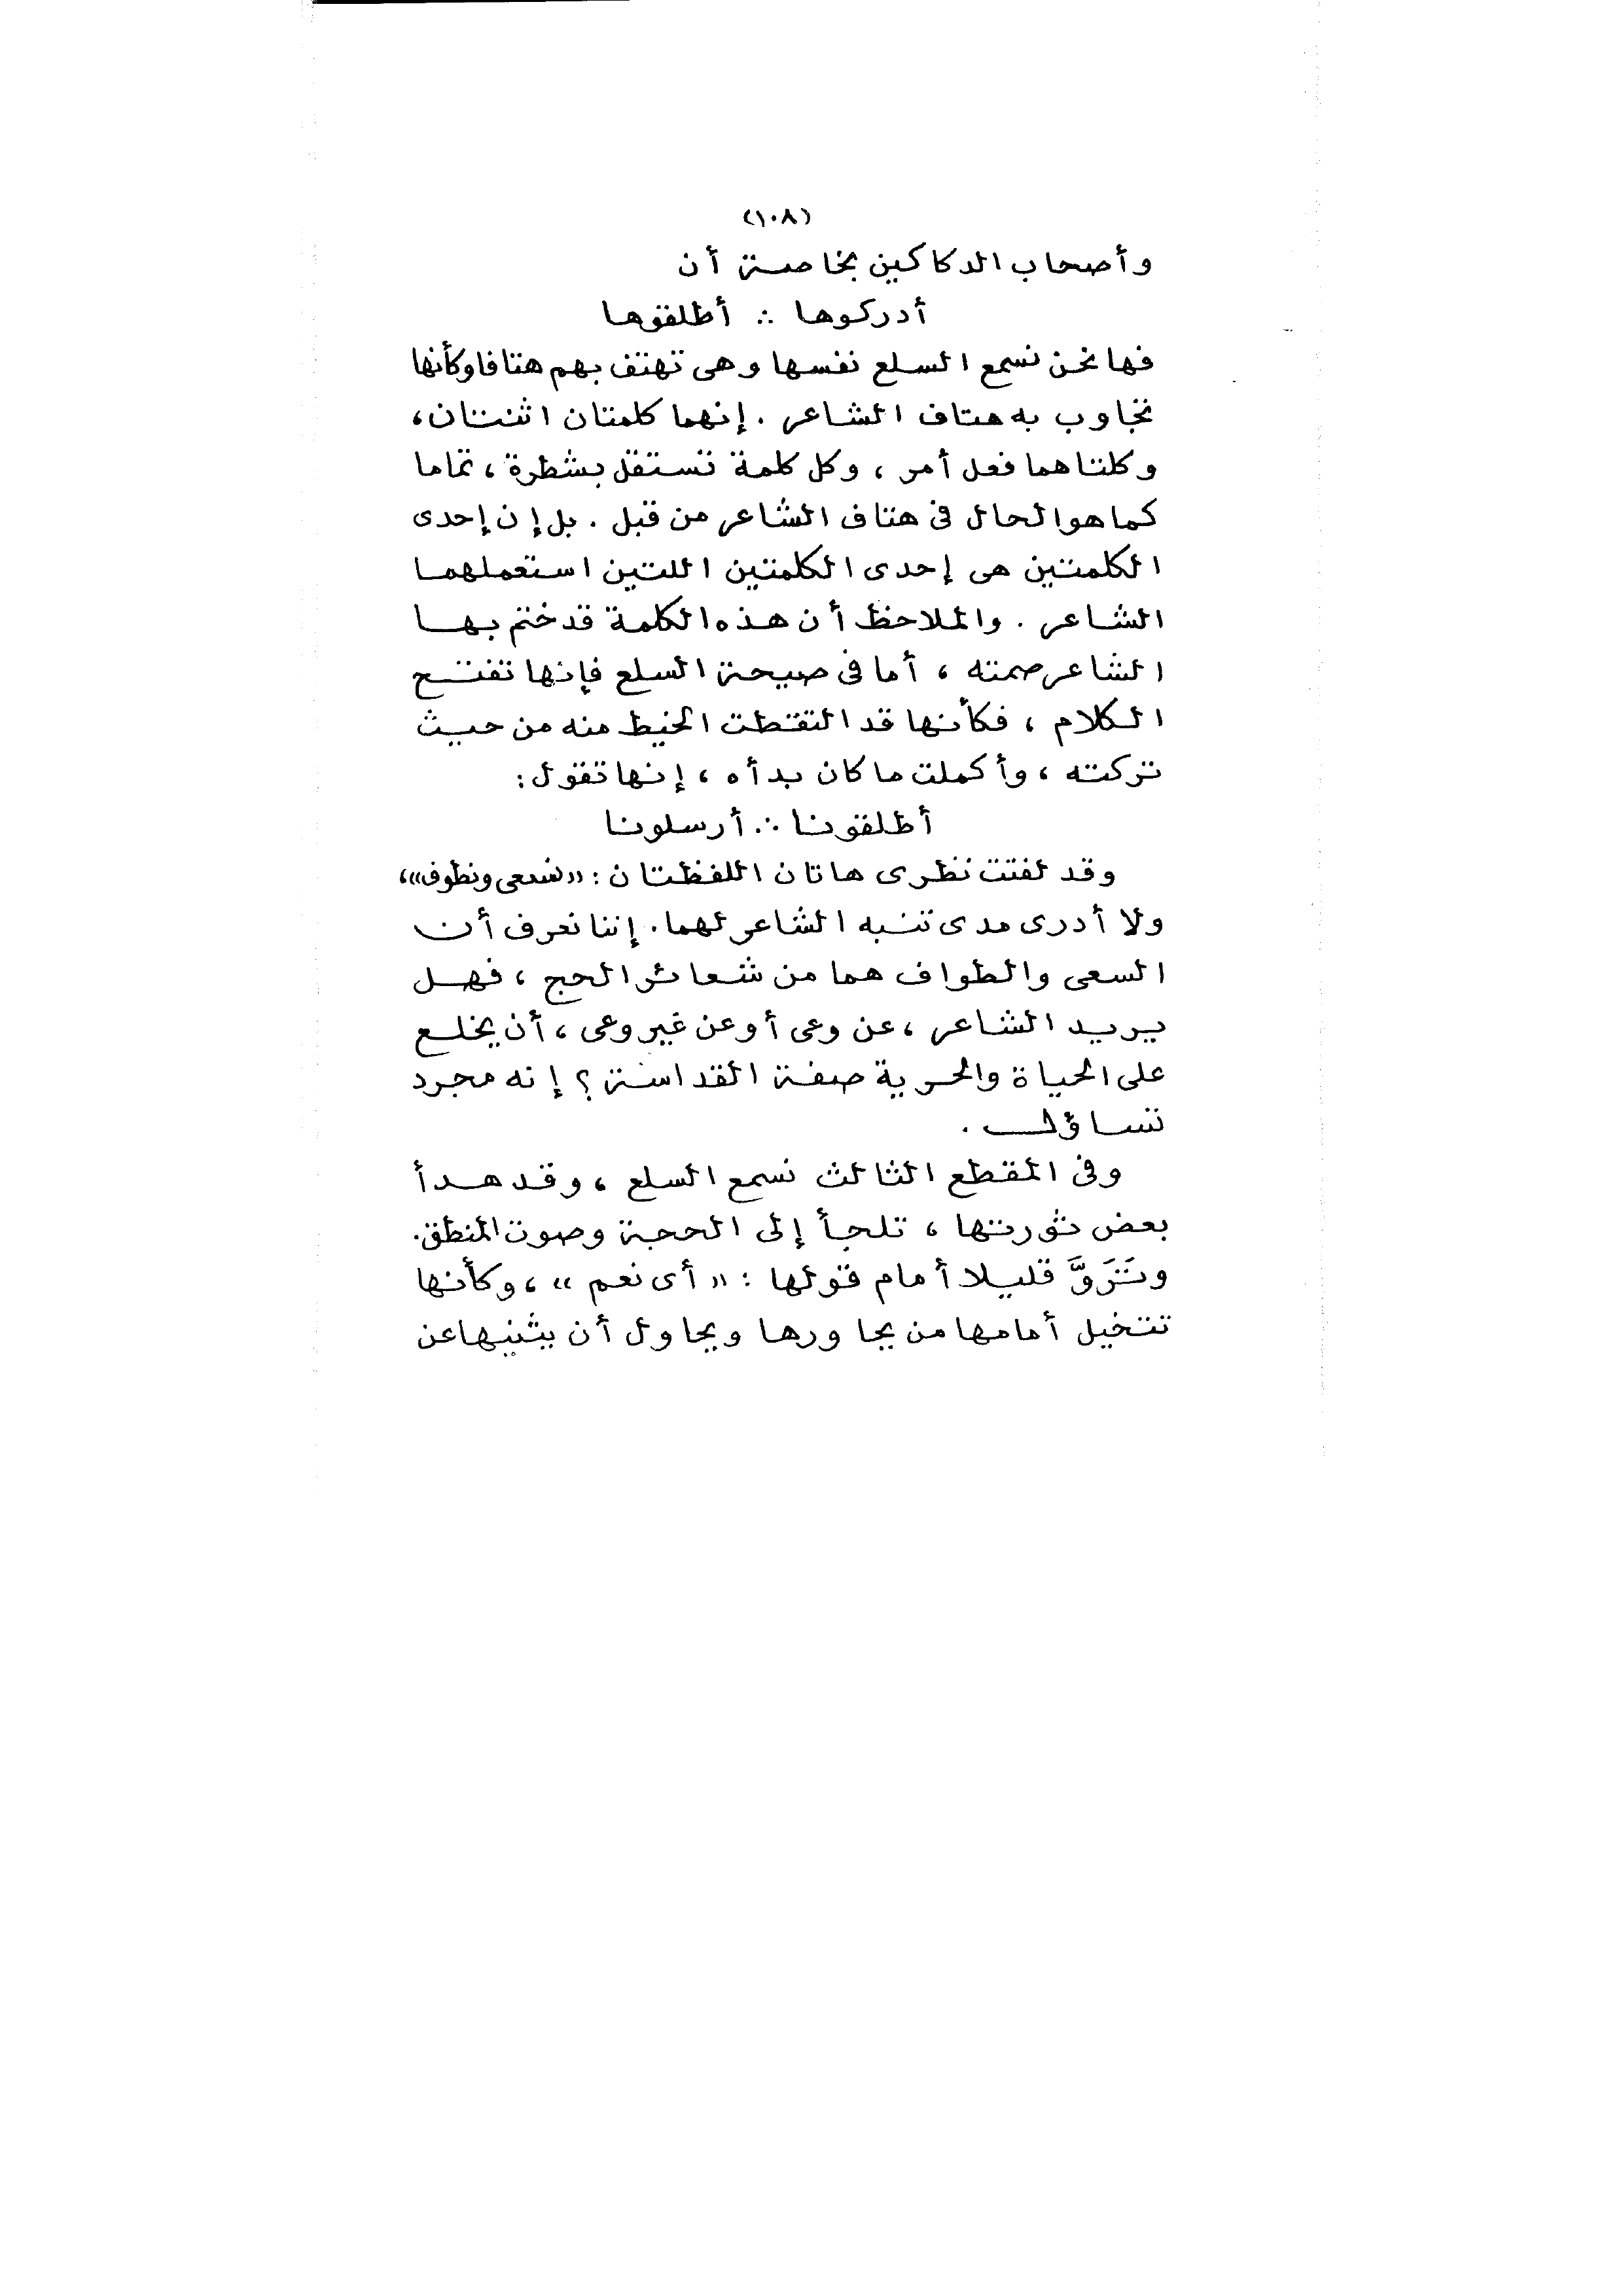 (١٠٨)
وأصحاب الدكاكين بخاصة أن
أدركوها ∴ أطلقوها
فها نحن نسمع السلع نفسها وهى تهتف بهم هتافا وكأنها
تجاوب به هتاف الشاعر . إنهما كلمتان اثنتان،
وكلتاهما فعل أمر ، وكل كلمة تستقل بشطرة ، تماما
كما هو الحال فى هتاف الشاعر من قبل . بل إن إحدى
الكلمتين هى إحدى الكلمتين اللتين استعملهما
الشاعر . والملاحظ أن هذه الكلمة قد ختم بها
الشاعر صمته ، أما فى صيحة السلع فإنها تفتتح
الكلام ، فكأنها قد التقطت الخيط منه من حيث
تركته ، وأكملت ما كان بدأه ، إنها تقول :
أطلقونا ∴ أرسلونا
وقد لفتت نظرى هاتان اللفظتان : «نسعى ونطوف» ،
ولا أدرى مدى تنبه الشاعر لهما . إننا نعرف أن
السعى والطواف هما من شعائر الحج ، فهل
يريد الشاعر ، عن وعى أو عن غير وعى ، أن يخلع
على الحياة والحرية صفة القداسة ؟ إنه مجرد
تساؤل .
وفى المقطع الثالث نسمع السلع ، وقد هدأ
بعض ثورتها ، تلجأ إلى الحجة وصوت المنطق .
قليلا أمام قولها : « أى نعم » ، وكأنها
تتخيل أمامها من يحاورها ويحاول أن يثنيها عن